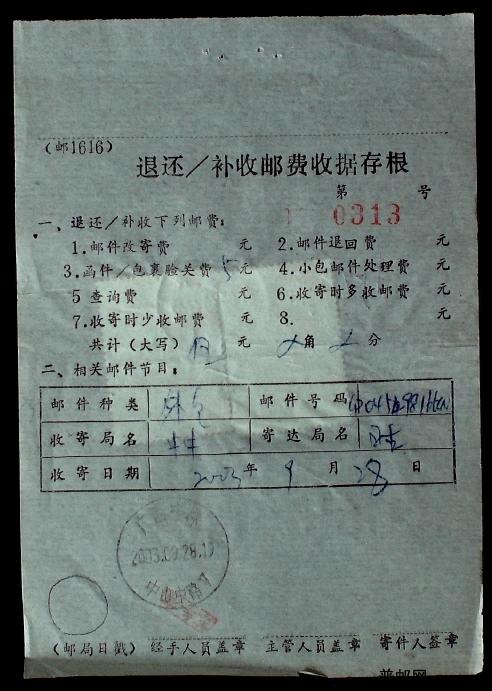 (邮1616)
退还／补收邮费收据存根
第 号
0313
一、退还／补收下列邮费：
1.邮件改寄费 元 2.邮件退回费 元
3.函件／包裹验关费 5 元 4.小包邮件处理费 元
5 查询费 元 6.收寄时多收邮费 元
7.收寄时少收邮费 元 8. 元
共计（大写） 元 角 分
二、相关邮件节目：
邮件种类 邮件号码
收寄局名 寄达局名 日本
收寄日期 2003 年 9 月 28 日
2003.09.28.17
中山中路
(邮局日戳) 经手人员盖章 主管人员盖章 寄件人签章
普邮网